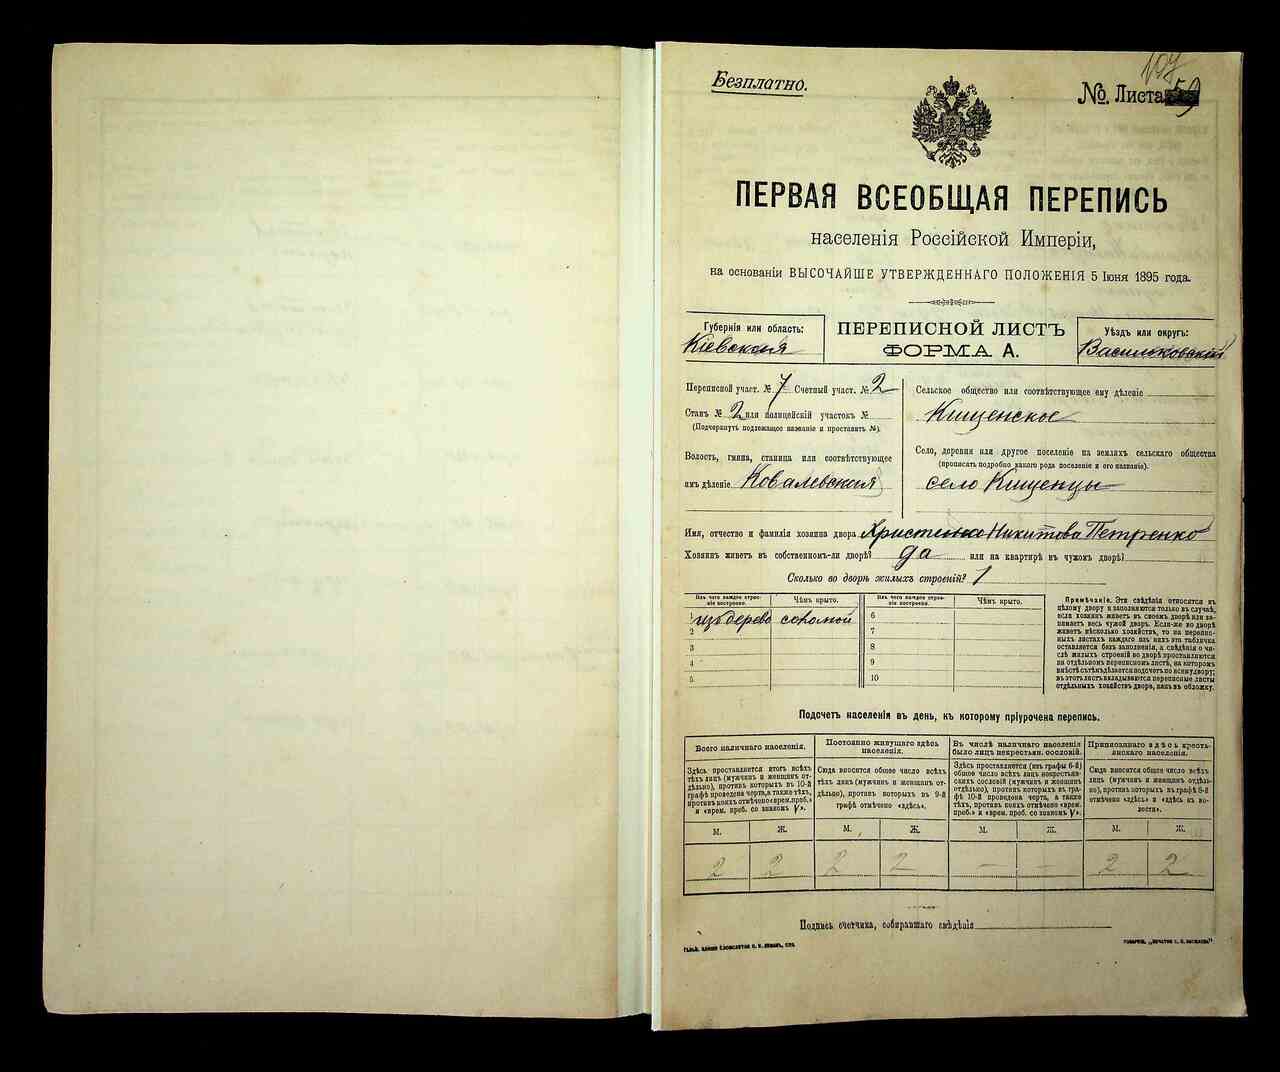 107
Безплатно.
№ Листа 59
ПЕРВАЯ ВСЕОБЩАЯ ПЕРЕПИСЬ
населенія Россійской Имперіи,
на основаніи ВЫСОЧАЙШЕ УТВЕРЖДЕННАГО ПОЛОЖЕНІЯ 5 Іюня 1895 года.
Губернія или область:
Кіевская
ПЕРЕПИСНОЙ ЛИСТЪ
ФОРМА А.
Уѣздъ или округъ:
Васильковскій
Переписной участ. № 7 Счетный участ. № 2
Станъ № 2 или полицейскій участокъ №
(Подчеркнуть подлежащее названіе и проставить №).
Волость, гмина, станица или соотвѣтствующее
имъ дѣленіе Ковалевская
Сельское общество или соотвѣтствующее ему дѣленіе
Кищенское
Село, деревня или другое поселеніе на земляхъ сельскаго общества
(прописать подробно какого рода поселеніе и его названіе).
село Кищенцы
Имя, отчество и фамилія хозяина двора Никитова Петренко
Хозяинъ живетъ въ собственномъ-ли дворѣ? да или на квартирѣ въ чужомъ дворѣ?
Сколько во дворѣ жилыхъ строеній? 1
Изъ чего каждое строе-
ніе построено.
Чѣмъ крыто.
Изъ чего каждое строе-
ніе построено.
Чѣмъ крыто.
1 изъ дерева соломой
2
3
4
5
6
7
8
9
10
Примѣчаніе. Эти свѣдѣнія относятся къ
цѣлому двору и заполняются только въ случаѣ,
если хозяинъ живетъ въ своемъ дворѣ или за-
нимаетъ весь чужой дворъ. Если-же во дворѣ
живетъ нѣсколько хозяйствъ, то на перепис-
ныхъ листахъ каждаго изъ нихъ эта табличка
оставляется безъ заполненія, а свѣдѣнія о чи-
слѣ жилыхъ строеній во дворѣ проставляются
на отдѣльномъ переписномъ листѣ, на которомъ
вмѣстѣ съ тѣмъ дѣлается подсчетъ по всему двору;
въ этотъ листъ вкладываются переписные листы
отдѣльныхъ хозяйствъ двора, какъ въ обложку.
Подсчетъ населенія въ день, къ которому пріурочена перепись.
Всего наличнаго населенія.
Здѣсь проставляется итогъ всѣхъ
тѣхъ лицъ (мужчинъ и женщинъ от-
дѣльно), противъ которыхъ въ 10-й
графѣ проведена черта, а также тѣхъ,
противъ коихъ отмѣчено «врем. преб.»
и «врем. преб. со знакомъ V».
Постоянно живущаго здѣсь
населенія.
Сюда вносится общее число всѣхъ
тѣхъ лицъ (мужчинъ и женщинъ от-
дѣльно), противъ которыхъ въ 9-й
графѣ отмѣчено «здѣсь».
Въ числѣ наличнаго населенія
было лицъ некрестьян. сословій.
Здѣсь проставляется (изъ графы 6-й)
общее число всѣхъ лицъ некрестьян-
скихъ сословій (мужчинъ и женщинъ
отдѣльно), противъ которыхъ въ гра-
фѣ 10-й проведена черта, а также
тѣхъ, противъ коихъ отмѣчено «врем.
преб.» и «врем. преб. со знакомъ V».
Приписаннаго здѣсь кресть-
янскаго населенія.
Сюда вносится общее число всѣхъ
лицъ (мужчинъ и женщинъ отдѣль-
но), противъ которыхъ въ графѣ 8-й
отмѣчено «здѣсь» и «здѣсь въ во-
лости».
М. Ж. М. Ж. М. Ж. М. Ж.
2 2 2 2 — — 2 2
Подпись счетчика, собиравшаго свѣдѣнія